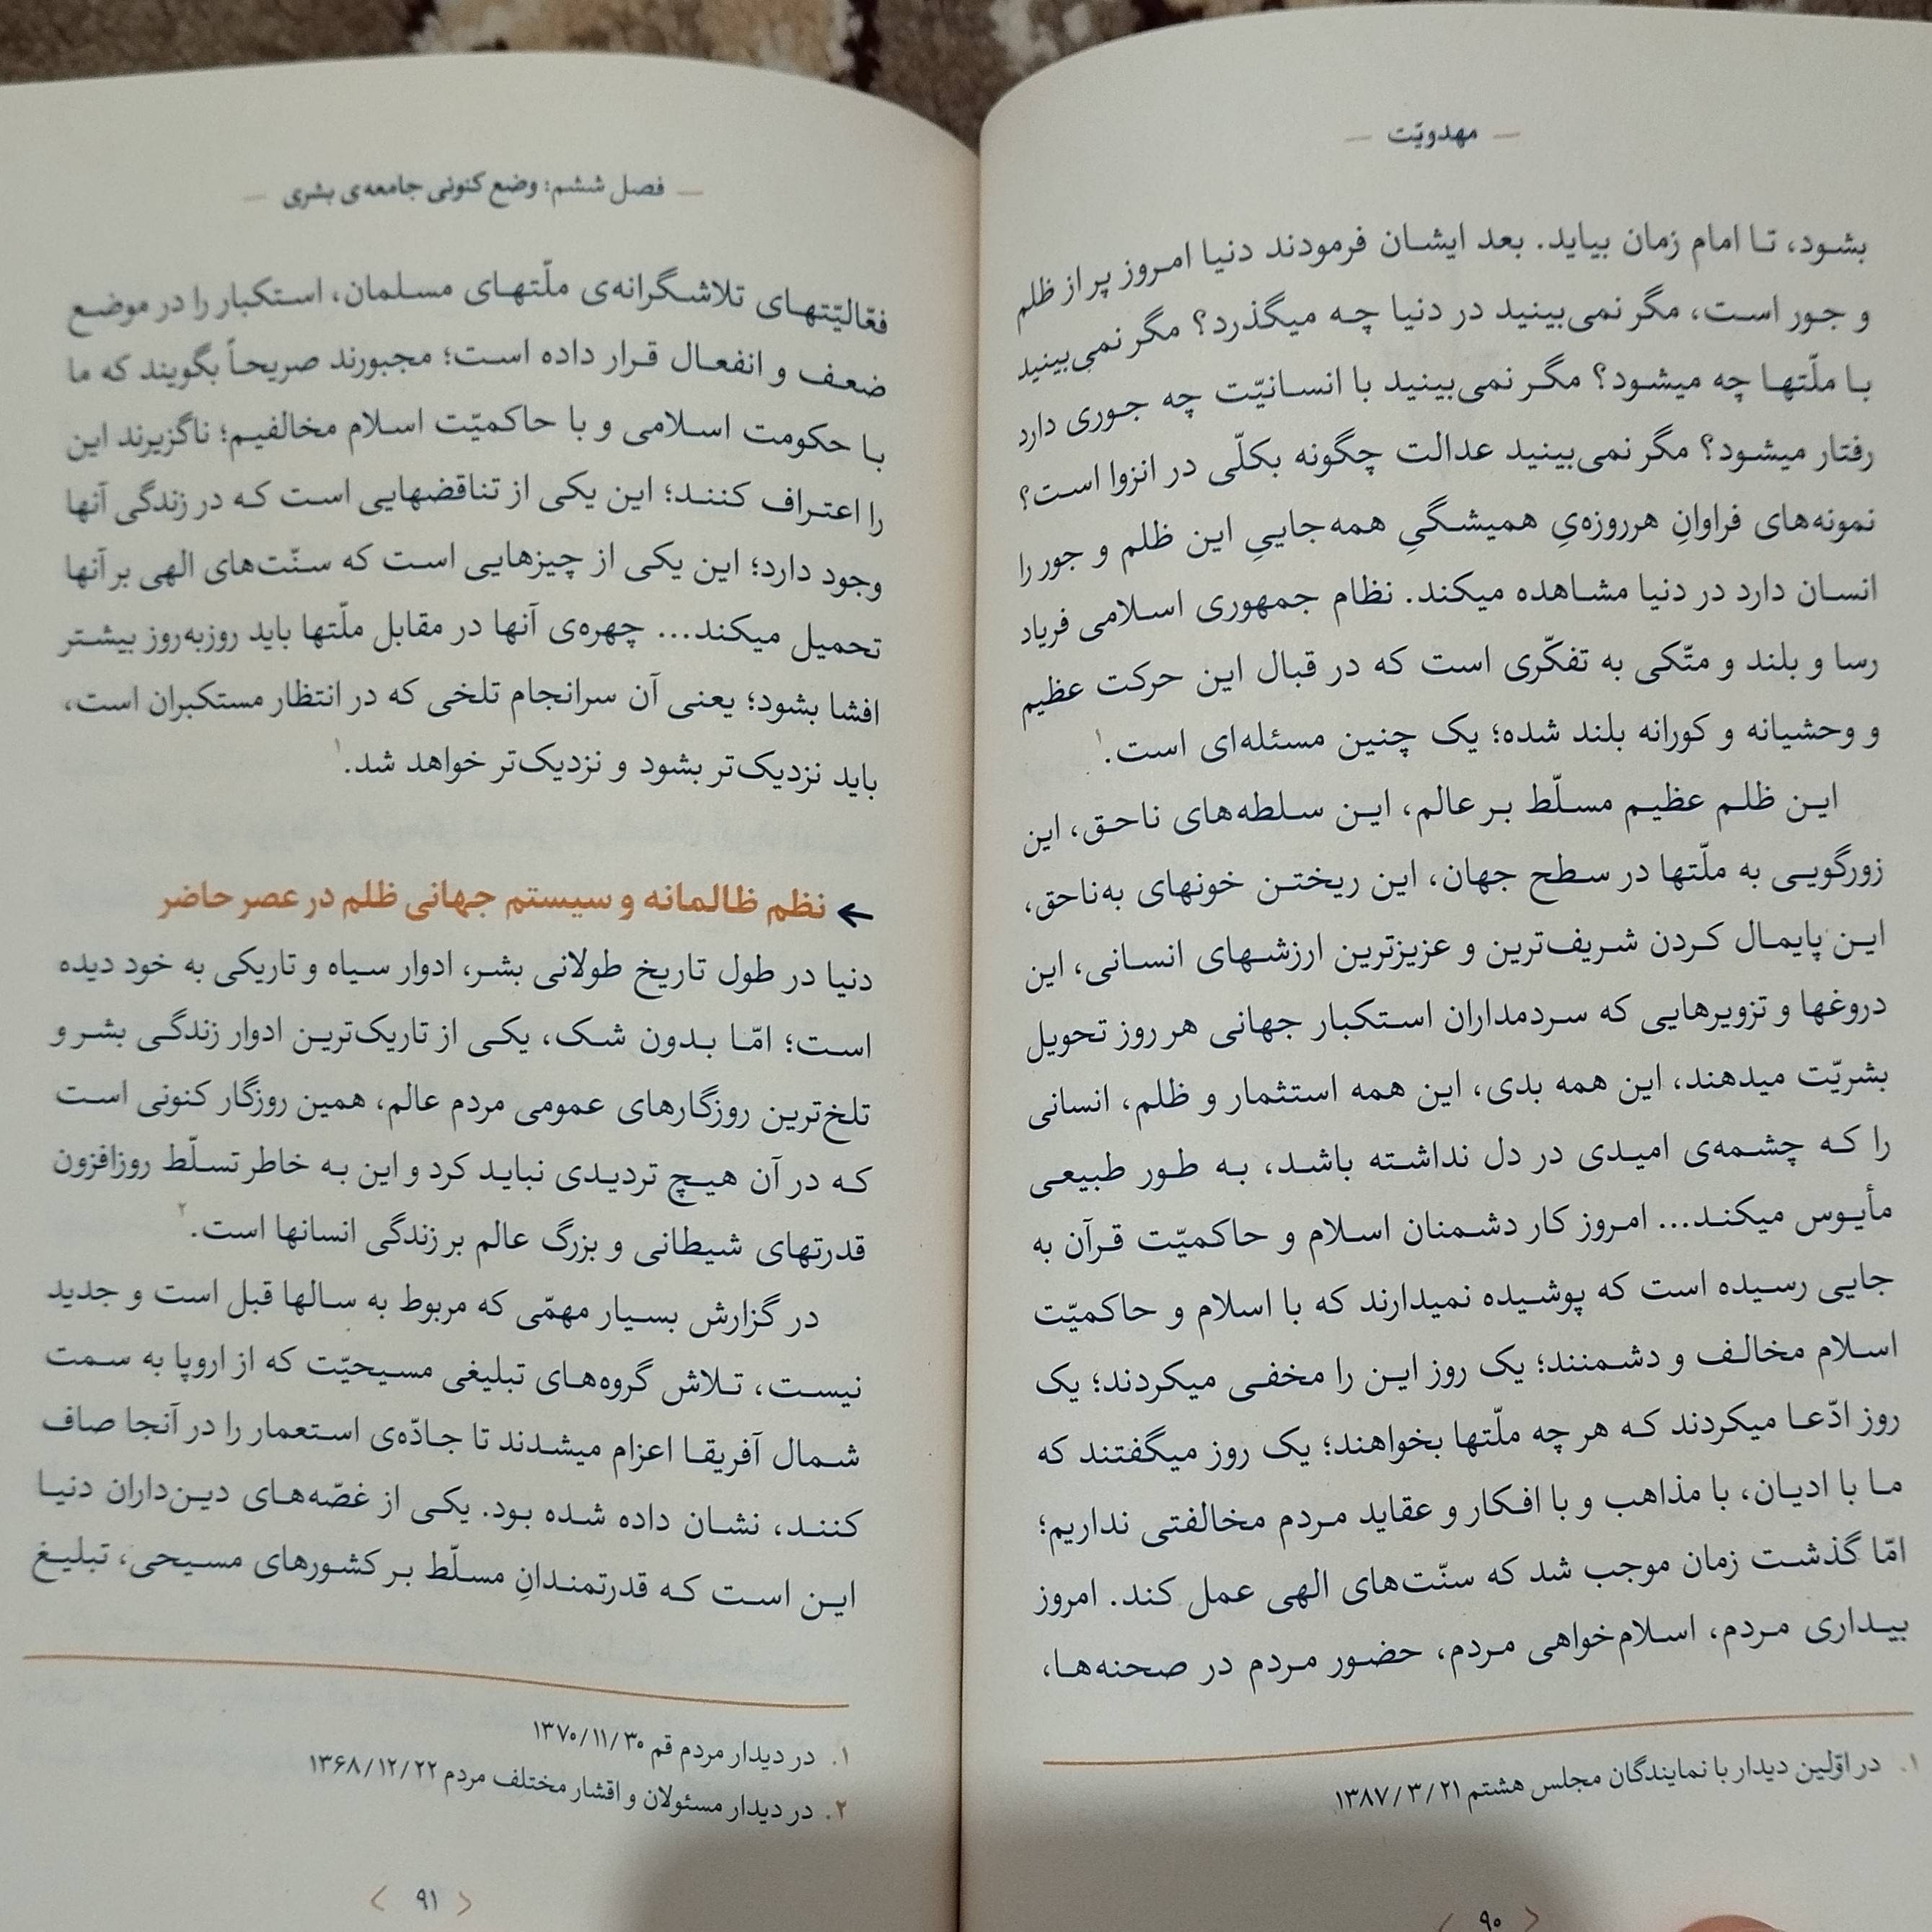 مهدویّت
بشود، تا امام زمان بیاید. بعد ایشان فرمودند دنیا امروز پر از ظلم
و جور است، مگر نمی‌بینید در دنیا چه میگذرد؟ مگر نمی‌بینید
با ملّتها چه میشود؟ مگر نمی‌بینید با انسانیّت چه جوری دارد
رفتار میشود؟ مگر نمی‌بینید عدالت چگونه بکلّی در انزوا است؟
نمونه‌های فراوانِ هرروزه‌یِ همیشگیِ همه‌جاییِ این ظلم و جور را
انسان دارد در دنیا مشاهده میکند. نظام جمهوری اسلامی فریاد
رسا و بلند و متّکی به تفکّری است که در قبال این حرکت عظیم
و وحشیانه و کورانه بلند شده؛ یک چنین مسئله‌ای است.۱
این ظلم عظیم مسلّط بر عالم، این سلطه‌های ناحق، این
زورگویی به ملّتها در سطح جهان، این ریختن خونهای به‌ناحق،
این پایمال کردن شریف‌ترین و عزیزترین ارزشهای انسانی، این
دروغها و تزویرهایی که سردمداران استکبار جهانی هر روز تحویل
بشریّت میدهند، این همه بدی، این همه استثمار و ظلم، انسانی
را که چشمه‌ی امیدی در دل نداشته باشد، به طور طبیعی
مأیوس میکند... امروز کار دشمنان اسلام و حاکمیّت قرآن به
جایی رسیده است که پوشیده نمیدارند که با اسلام و حاکمیّت
اسلام مخالف و دشمنند؛ یک روز این را مخفی میکردند؛ یک
روز ادّعا میکردند که هر چه ملّتها بخواهند؛ یک روز میگفتند که
ما با ادیان، با مذاهب و با افکار و عقاید مردم مخالفتی نداریم؛
امّا گذشت زمان موجب شد که سنّت‌های الهی عمل کند. امروز
بیداری مردم، اسلام‌خواهی مردم، حضور مردم در صحنه‌ها،
۱. در اوّلین دیدار با نمایندگان مجلس هشتم ۱۳۸۷/۳/۲۱
۹۰
فصل ششم: وضع کنونی جامعه‌ی بشری
فعّالیّتهای تلاشگرانه‌ی ملّتهای مسلمان، استکبار را در موضع
ضعف و انفعال قرار داده است؛ مجبورند صریحاً بگویند که ما
با حکومت اسلامی و با حاکمیّت اسلام مخالفیم؛ ناگزیرند این
را اعتراف کنند؛ این یکی از تناقضهایی است که در زندگی آنها
وجود دارد؛ این یکی از چیزهایی است که سنّت‌های الهی بر آنها
تحمیل میکند... چهره‌ی آنها در مقابل ملّتها باید روزبه‌روز بیشتر
افشا بشود؛ یعنی آن سرانجام تلخی که در انتظار مستکبران است،
باید نزدیک‌تر بشود و نزدیک‌تر خواهد شد.۱
← نظم ظالمانه و سیستم جهانی ظلم در عصر حاضر
دنیا در طول تاریخ طولانی بشر، ادوار سیاه و تاریکی به خود دیده
است؛ امّا بدون شک، یکی از تاریک‌ترین ادوار زندگی بشر و
تلخ‌ترین روزگارهای عمومی مردم عالم، همین روزگار کنونی است
که در آن هیچ تردیدی نباید کرد و این به خاطر تسلّط روزافزون
قدرتهای شیطانی و بزرگ عالم بر زندگی انسانها است.۲
در گزارش بسیار مهمّی که مربوط به سالها قبل است و جدید
نیست، تلاش گروه‌های تبلیغی مسیحیّت که از اروپا به سمت
شمال آفریقا اعزام میشدند تا جادّه‌ی استعمار را در آنجا صاف
کنند، نشان داده شده بود. یکی از غصّه‌های دین‌داران دنیا
این است که قدرتمندانِ مسلّط بر کشورهای مسیحی، تبلیغ
۱. در دیدار مردم قم ۱۳۷۰/۱۱/۳۰
۲. در دیدار مسئولان و اقشار مختلف مردم ۱۳۶۸/۱۲/۲۲
۹۱